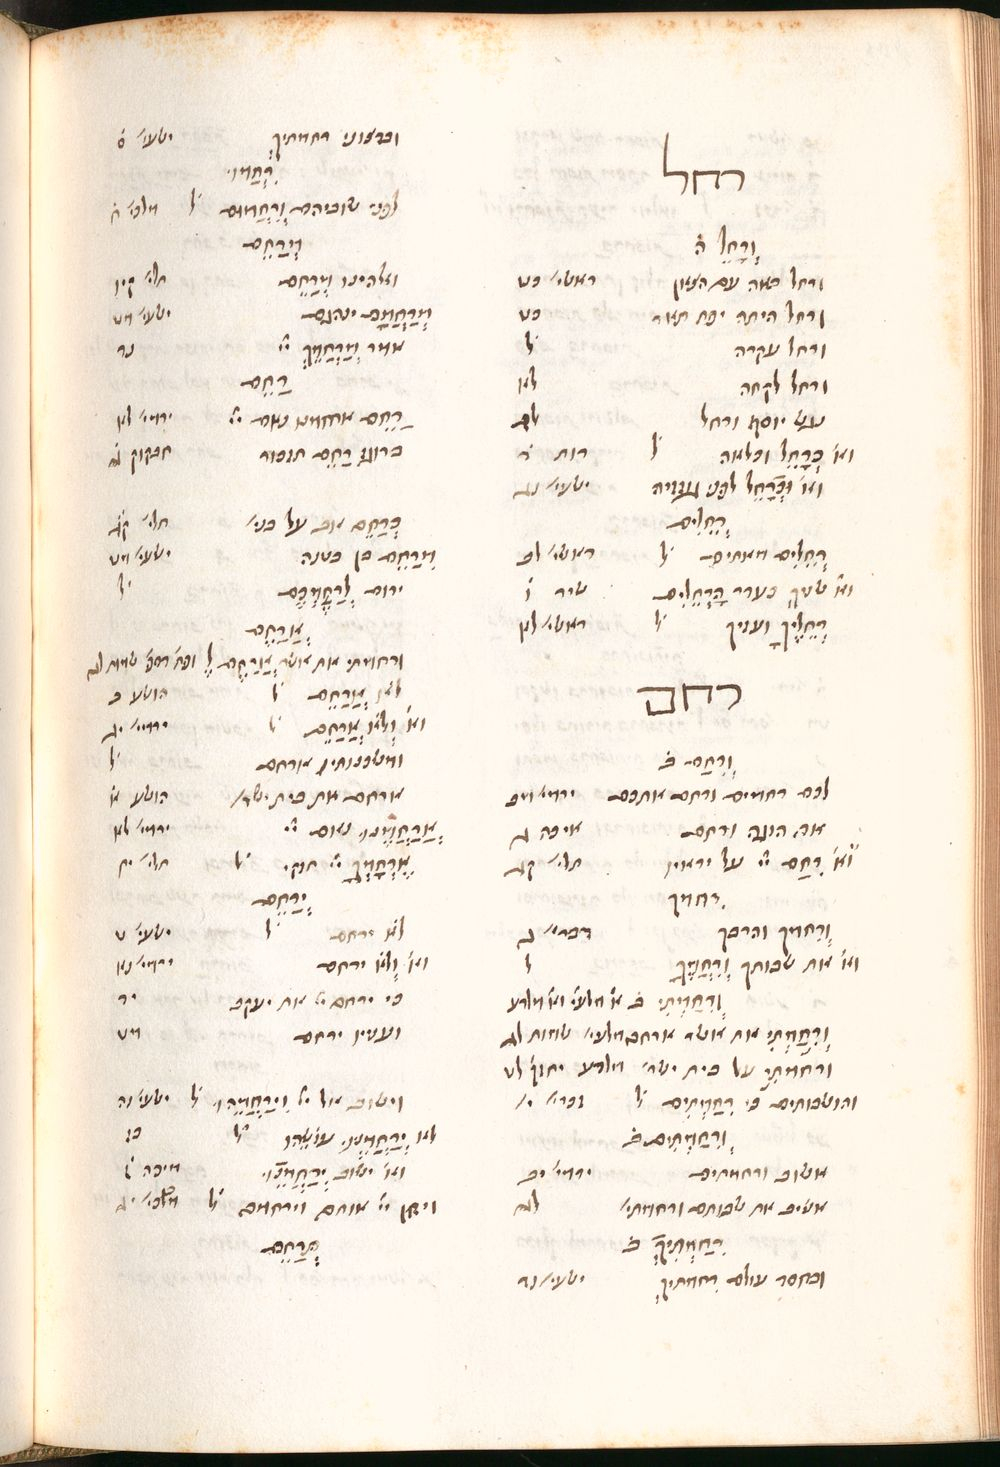 רחל
וְרָחֵל ה֗
ורחל באה עם הצאן ראשי׳ כט
ורחל היתה יפת תאר כט
ורחל עקרה ל׳
ורחל לקחה לא
נגש יוסף ורחל לג
וא׳ כְּרָחֵל וכלאה ל׳ רות ד֗
וא׳ וּכְרָחֵל לפני גוזזיה ישעי׳ נג
רְחֵלִים
רְחֵלִים מאתים ל׳ ראשי׳ לב
וא׳ שניך כעדר הָרְחֵלִים שיר ו֗
רְחֵלֶיךָ ועזיך ל׳ ראשי׳ לא
רחם
וְרִחַם ב֗
לכם רחמים ורחם אתכם ירמי׳ מב
אם הוגה ורחם איכה ג
וא׳ רִחַם יי׳ על יראיו תלי׳ קג
רחמך
וְרִחמך והרבך דברי׳ ג
וא׳ את שבותך וְרִחֲמֶךָ ל׳
וְרִחַמְתִּי ב֗ א׳ מלעי׳ וא׳ מלרע
וְרִחַמְתִּי את אשר ארחם מלעי׳ שמות לג
ורחמתי על בית ישר׳ מלרע יחזק׳ לט
והושבותים כי רִחַמְתִּים ל׳ זכרי׳ י׳
וְרִחַמְתִּים ב֗
אשוב ורחמתים ירמי׳ יב
אשיב את שבותם ורחמתי׳ לג
רִחַמְתִּיךְ ב֗
ובחסד עולם רחמתיך ישעי׳ נד
וברצוני רחמתיך ישעי׳ ס֗
רִחֲמוּ
לפני שוביהם וְרִחֲמוּם ל׳ מלכי׳ ח֗
וִירַחֵם
ואלהינו מְרַחֵם תלי׳ קיו
מְרַחֲמָם ינהגם ישעי׳ מט
אמר מְרַחֲמֵךְ יי׳ נד
רַחֵם
רַחֵם ארחמנו נאם יי׳ ירמי׳ לא
ברוגז רַחֵם תזכור חבקוק ג֗
כְּרַחֵם אב על בני׳ תלי׳ קג
מֵרַחֵם בן בטנה ישעי׳ מט
ירום לְרַחֶמְכֶם ל׳
אֲרַחֵם
ורחמתי את אשר אֲרַחֵם ל׳ שמות לג
לא אֲרַחֵם ל׳ הושע ב
וא׳ וְלֹא אֲרַחֵם ל׳ ירמי׳ יג
ומשכנותיו ארחם ל׳
ארחם את בית ישר׳ הושע א֗
אֲרַחֲמֶנּוּ נאם יי׳ ירמי׳ לא
אֶרְחָמְךָ יי׳ חזקי ל׳ תלי׳ יח
יְרַחֵם
לא ירחם ל׳ ישעי׳ ט
וא׳ ולא ירחם ירמי׳ נא
כי ירחם יי׳ את יעקב יד
ועניו ירחם מט
וישוב אל יי׳ וִירַחֲמֵהוּ ל׳ ישעי׳ נה
לא יְרַחֲמֶנּוּ עושהו ל׳ כז
וא׳ ישוב יְרַחֲמֵנוּ מיכה ז֗
ויחן יי׳ אותם וירחמם ל׳ מלכי׳ יג
תְּרַחֵם